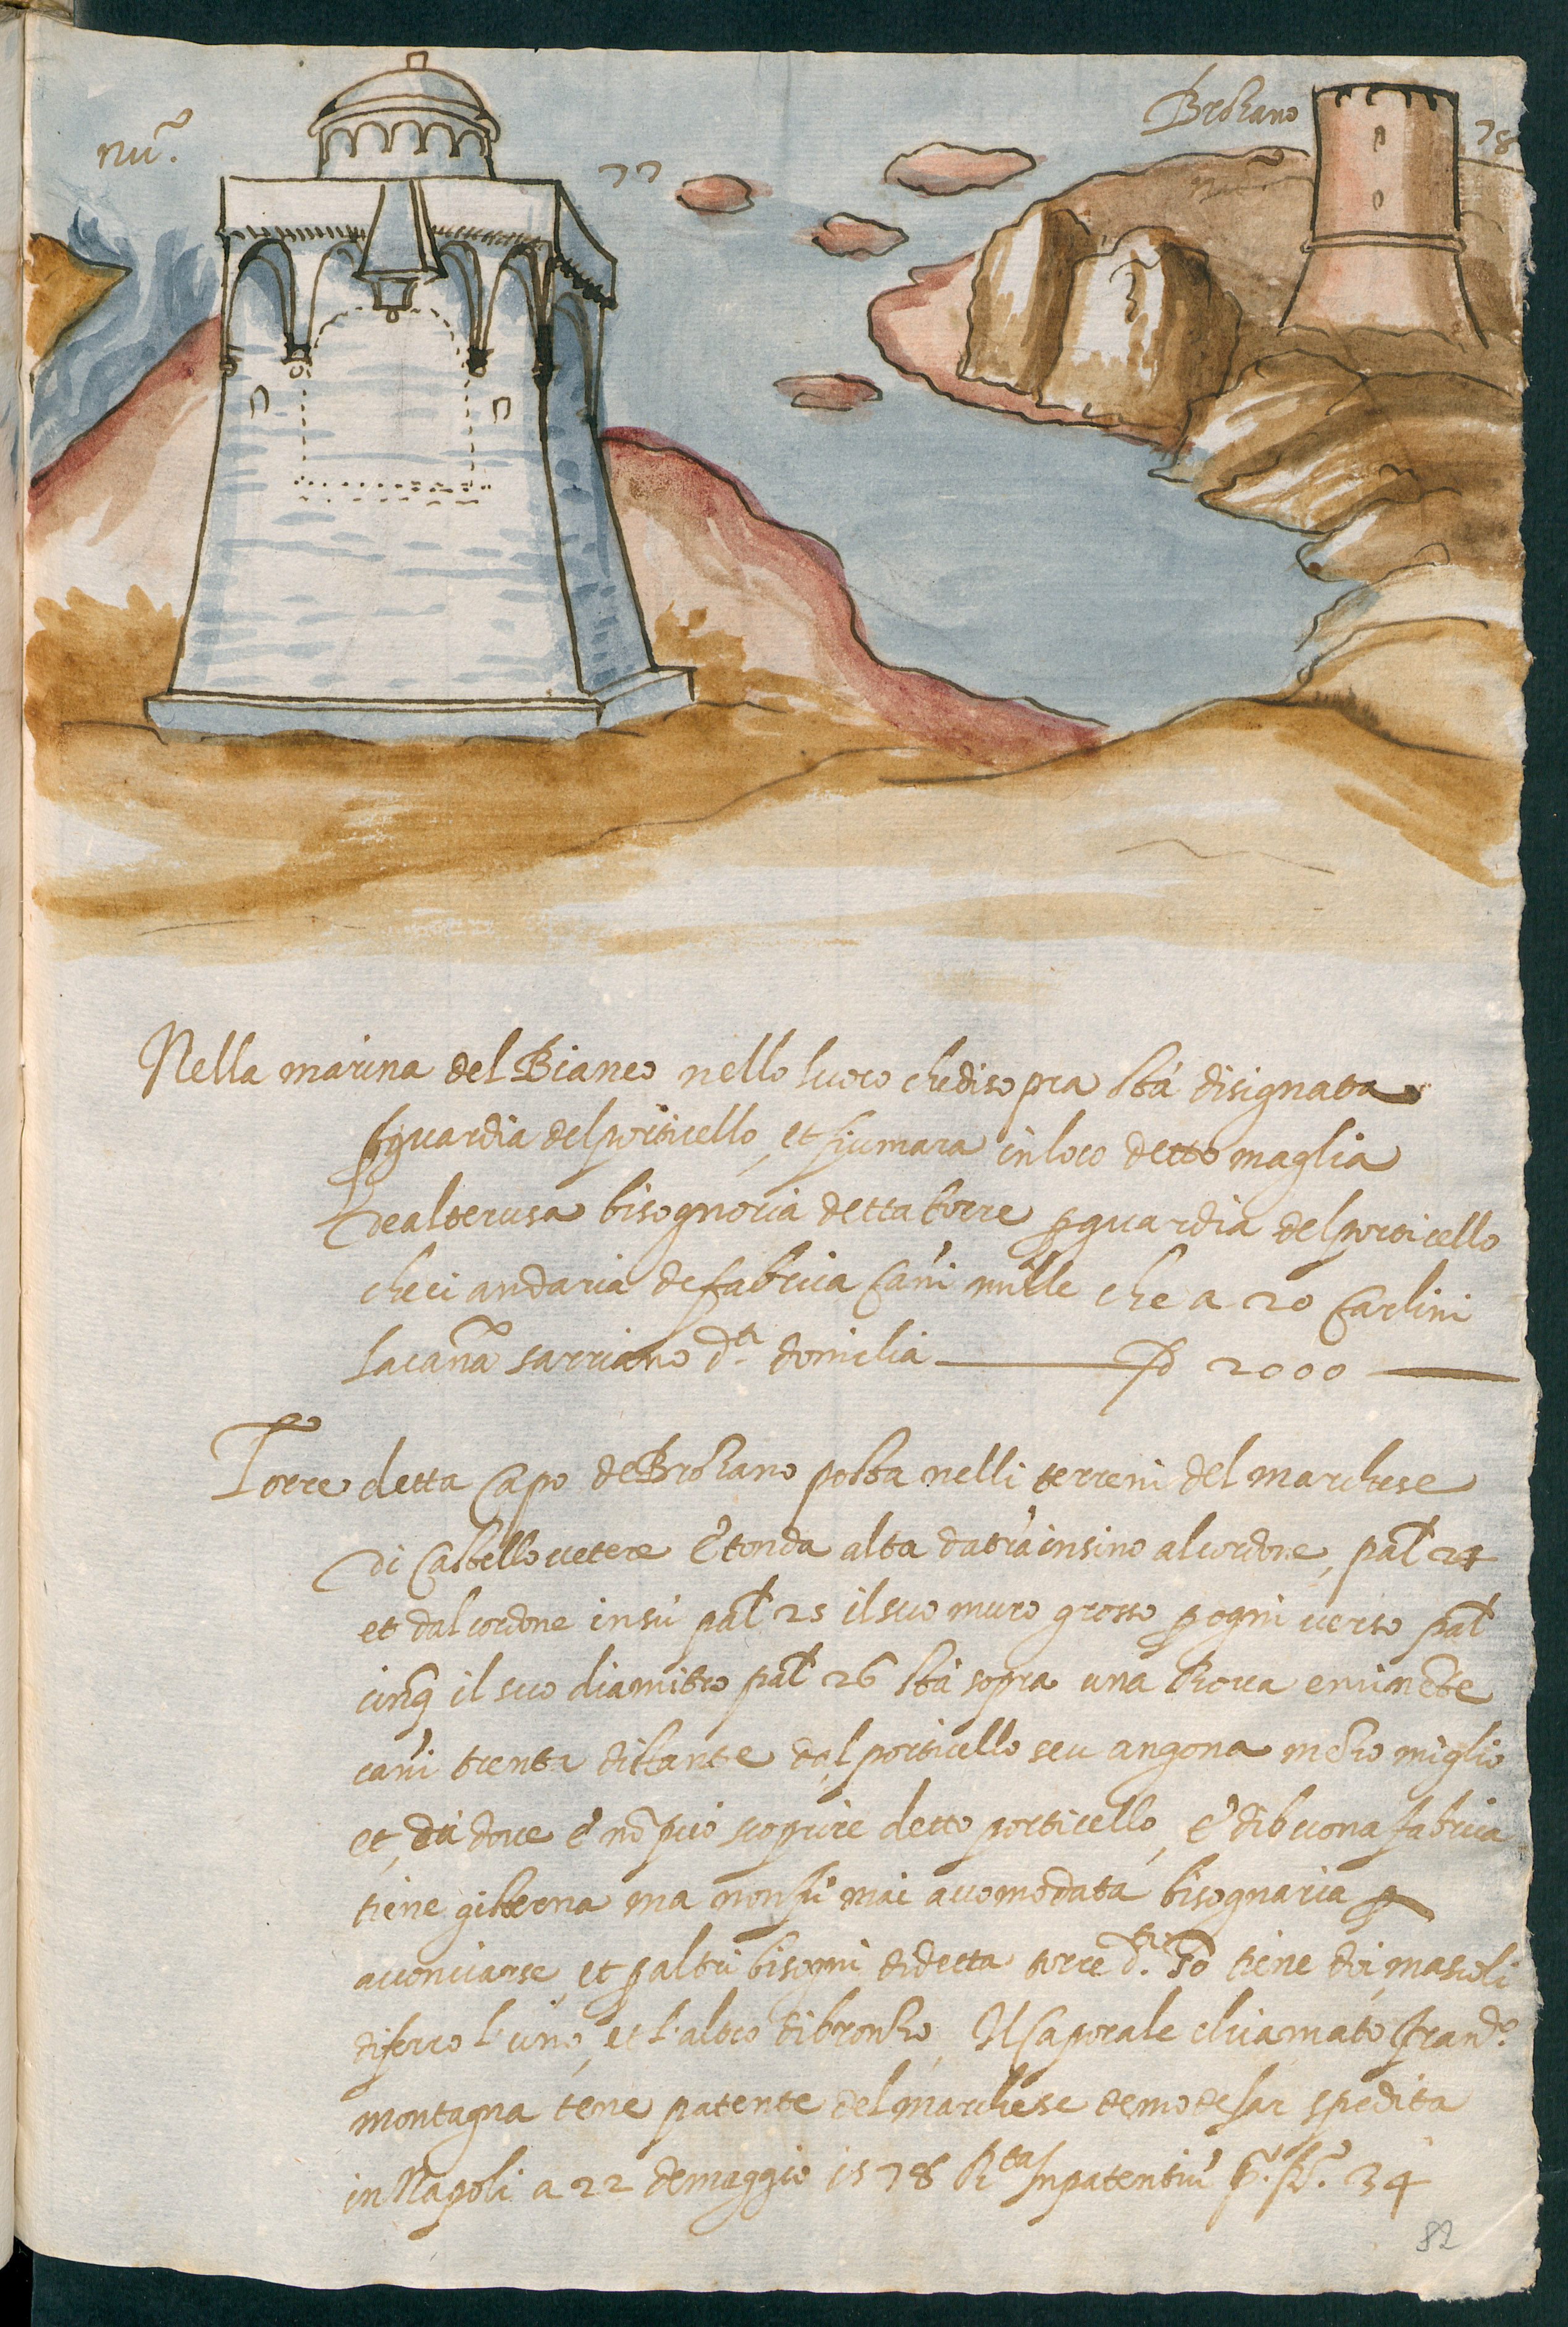 nu.̃ 77
Brozano 78
nu.̃
Nella marina del Bianco nello luoco che di sopra sta disignata
ꝑ guardia del porticello, et fiumara in loco detto maglia
de alterusa bisognoria detta torre ꝑ guardia del porticello
che ci andaria de fabrica canni mille che a 20 Carlini
la canna sarriano d.ti domilia 2000
Torre detta Capo de Brozano posta nelli terreni del marchese
di Castello vetere è tonda alta da tr̃a insino al cordone, pal 24
et dal cordone in sù pal 25 il suo muro grosso ꝑ ogni verso pal
cinq il suo diamitro pal 26 sta sopra una Rocca eminẽte
canni trenta distante dal porticello seu angona mezo miglio
et, da dove è nõ può scoprire detto porticello, è di buona fabrica
tiene gisterna ma non fù mai accomodata bisognaria ꝑ
acconciarse, et ꝑ altri bisogni di detta torre d.ti 50 tiene doi, mascoli
di ferro l'uno, et l'altro di bronzo, Il Caporale chiamato Fran.co
montagna tene patente del marchese de mõdesar spedita
in Napoli a 22 de maggio 1578 R.ta In patentiũ p.º fº. 34
82